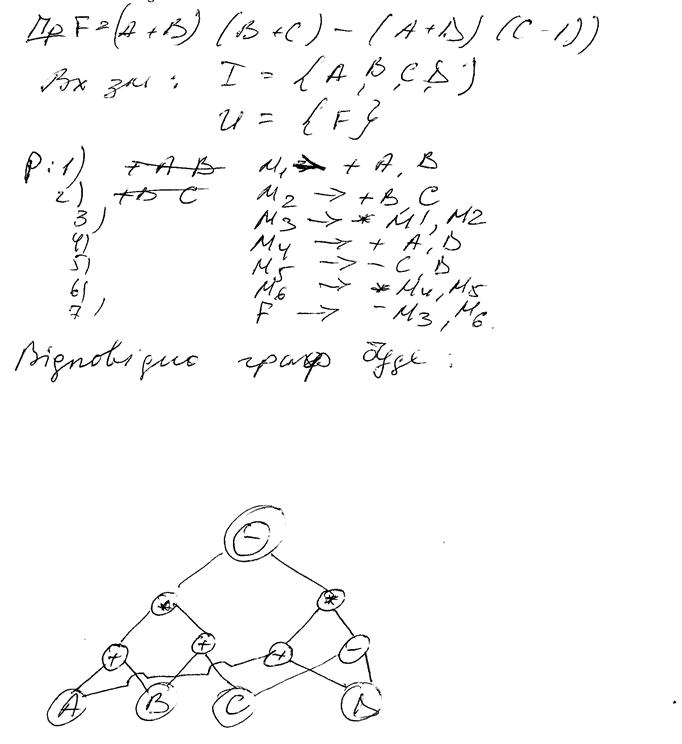 Пр F=(A+B) (B+C) - (A+D) (C-1))
Вх зм: I = {A, B, C, D}
U = {F}
P: 1) +AB M1 → + A, B
2) +B C M2 → +B, C
3) M3 → * M1, M2
4) M4 → + A, D
5) M5 → - C, D
6) M6 → * M4, M5
7) F → - M3, M6.
Відповідно граф буде:
-
* *
+ + + -
A B C D